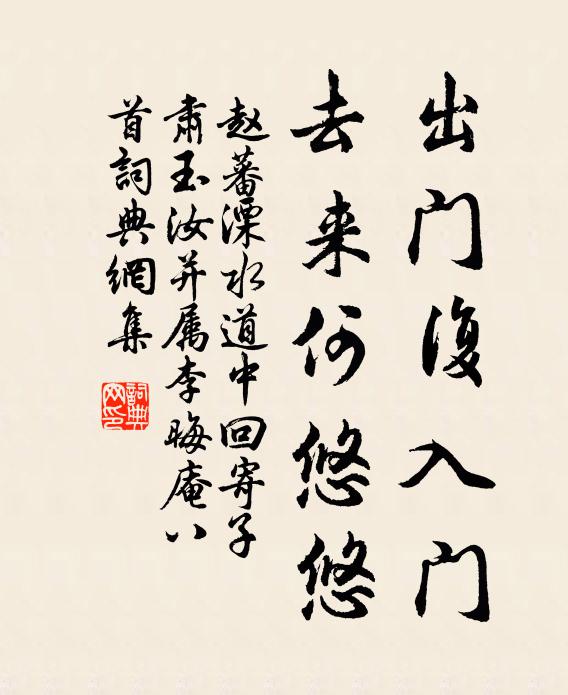 出门復入门
去来何悠悠
赵蕃溧水道中回寄子
肃玉汝并属李晦庵八
首詞典網集
詞典
网印